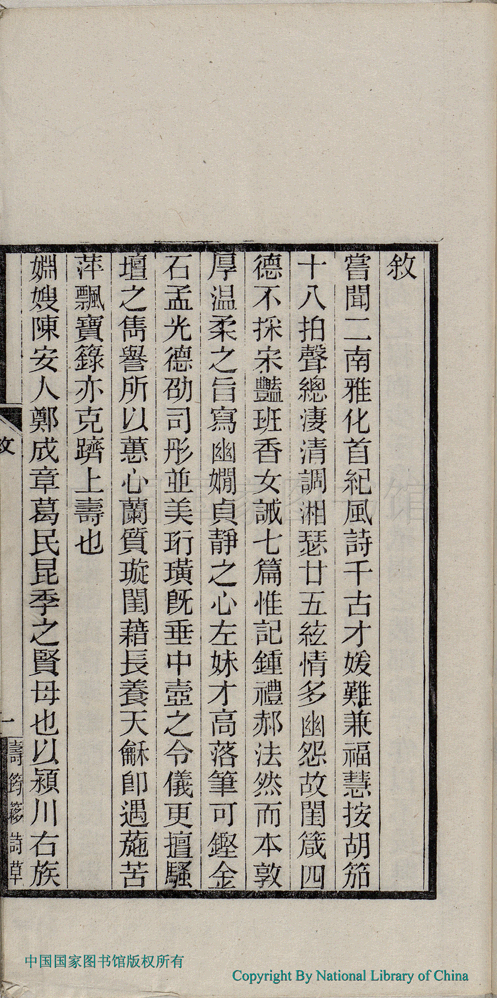 敘
嘗聞二南雅化首紀風詩千古才媛難兼福慧按胡笳
十八拍聲總淒清調湘瑟廿五絃情多幽怨故閨箴四
德不採宋豔班香女誡七篇惟記鍾禮郝法然而本敦
厚温柔之旨寫幽嫺貞靜之心左妹才高落筆可鏗金
石孟光德劭司彤並美珩璜旣垂中壼之令儀更擅騷
壇之雋譽所以蕙心蘭質璇閨藉長養天龢卽遇葹苦
萍飄寶籙亦克躋上壽也
嫺嫂陳安人鄭成章葛民昆季之賢母也以潁川右族
敘
一
壽簃詩草
中国国家图书馆版权所有
Copyright By National Library of China